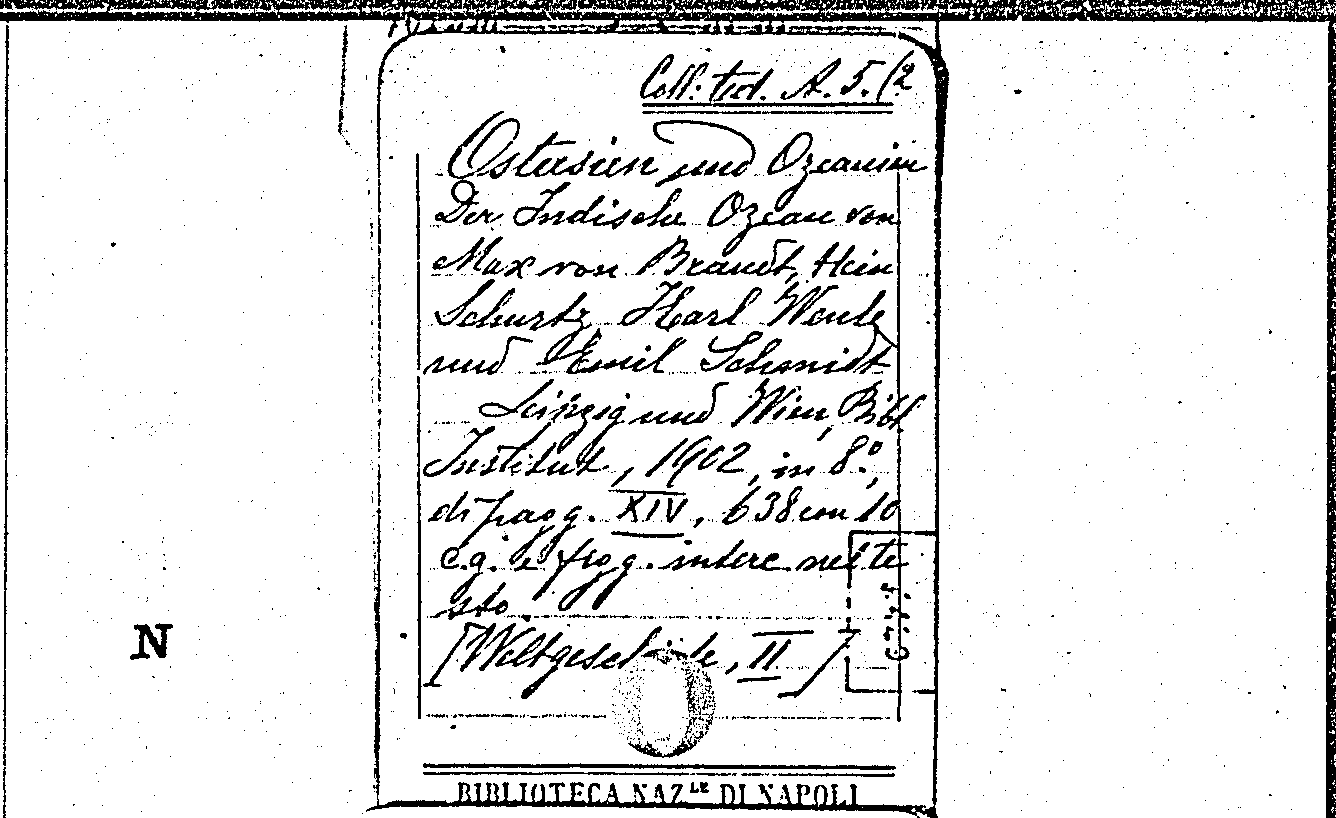 Coll. ted. A. 5./2
Ostasien und Ozeanien
Der Indische Ozean von
Max von Brandt, Hein
Schurtz, Karl Weule
und Emil Schmidt
Leipzig und Wien, Bibl.
Institut, 1902, in 8°,
di pagg. XIV, 638 con 10
c.g. e figg. interc. nel te
sto
[Weltgeschichte, II]
N
BIBLIOTECA NAZLE DI NAPOLI